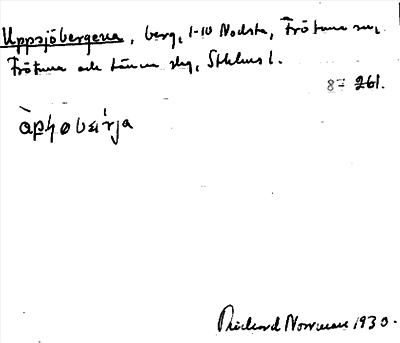 Uppsjöbergena, berg, 1-10 Nodsta, Frötuna sn,
Frötuna och Länna slg, Sthlms l.
87 261.
Rickard Norrman 1930.